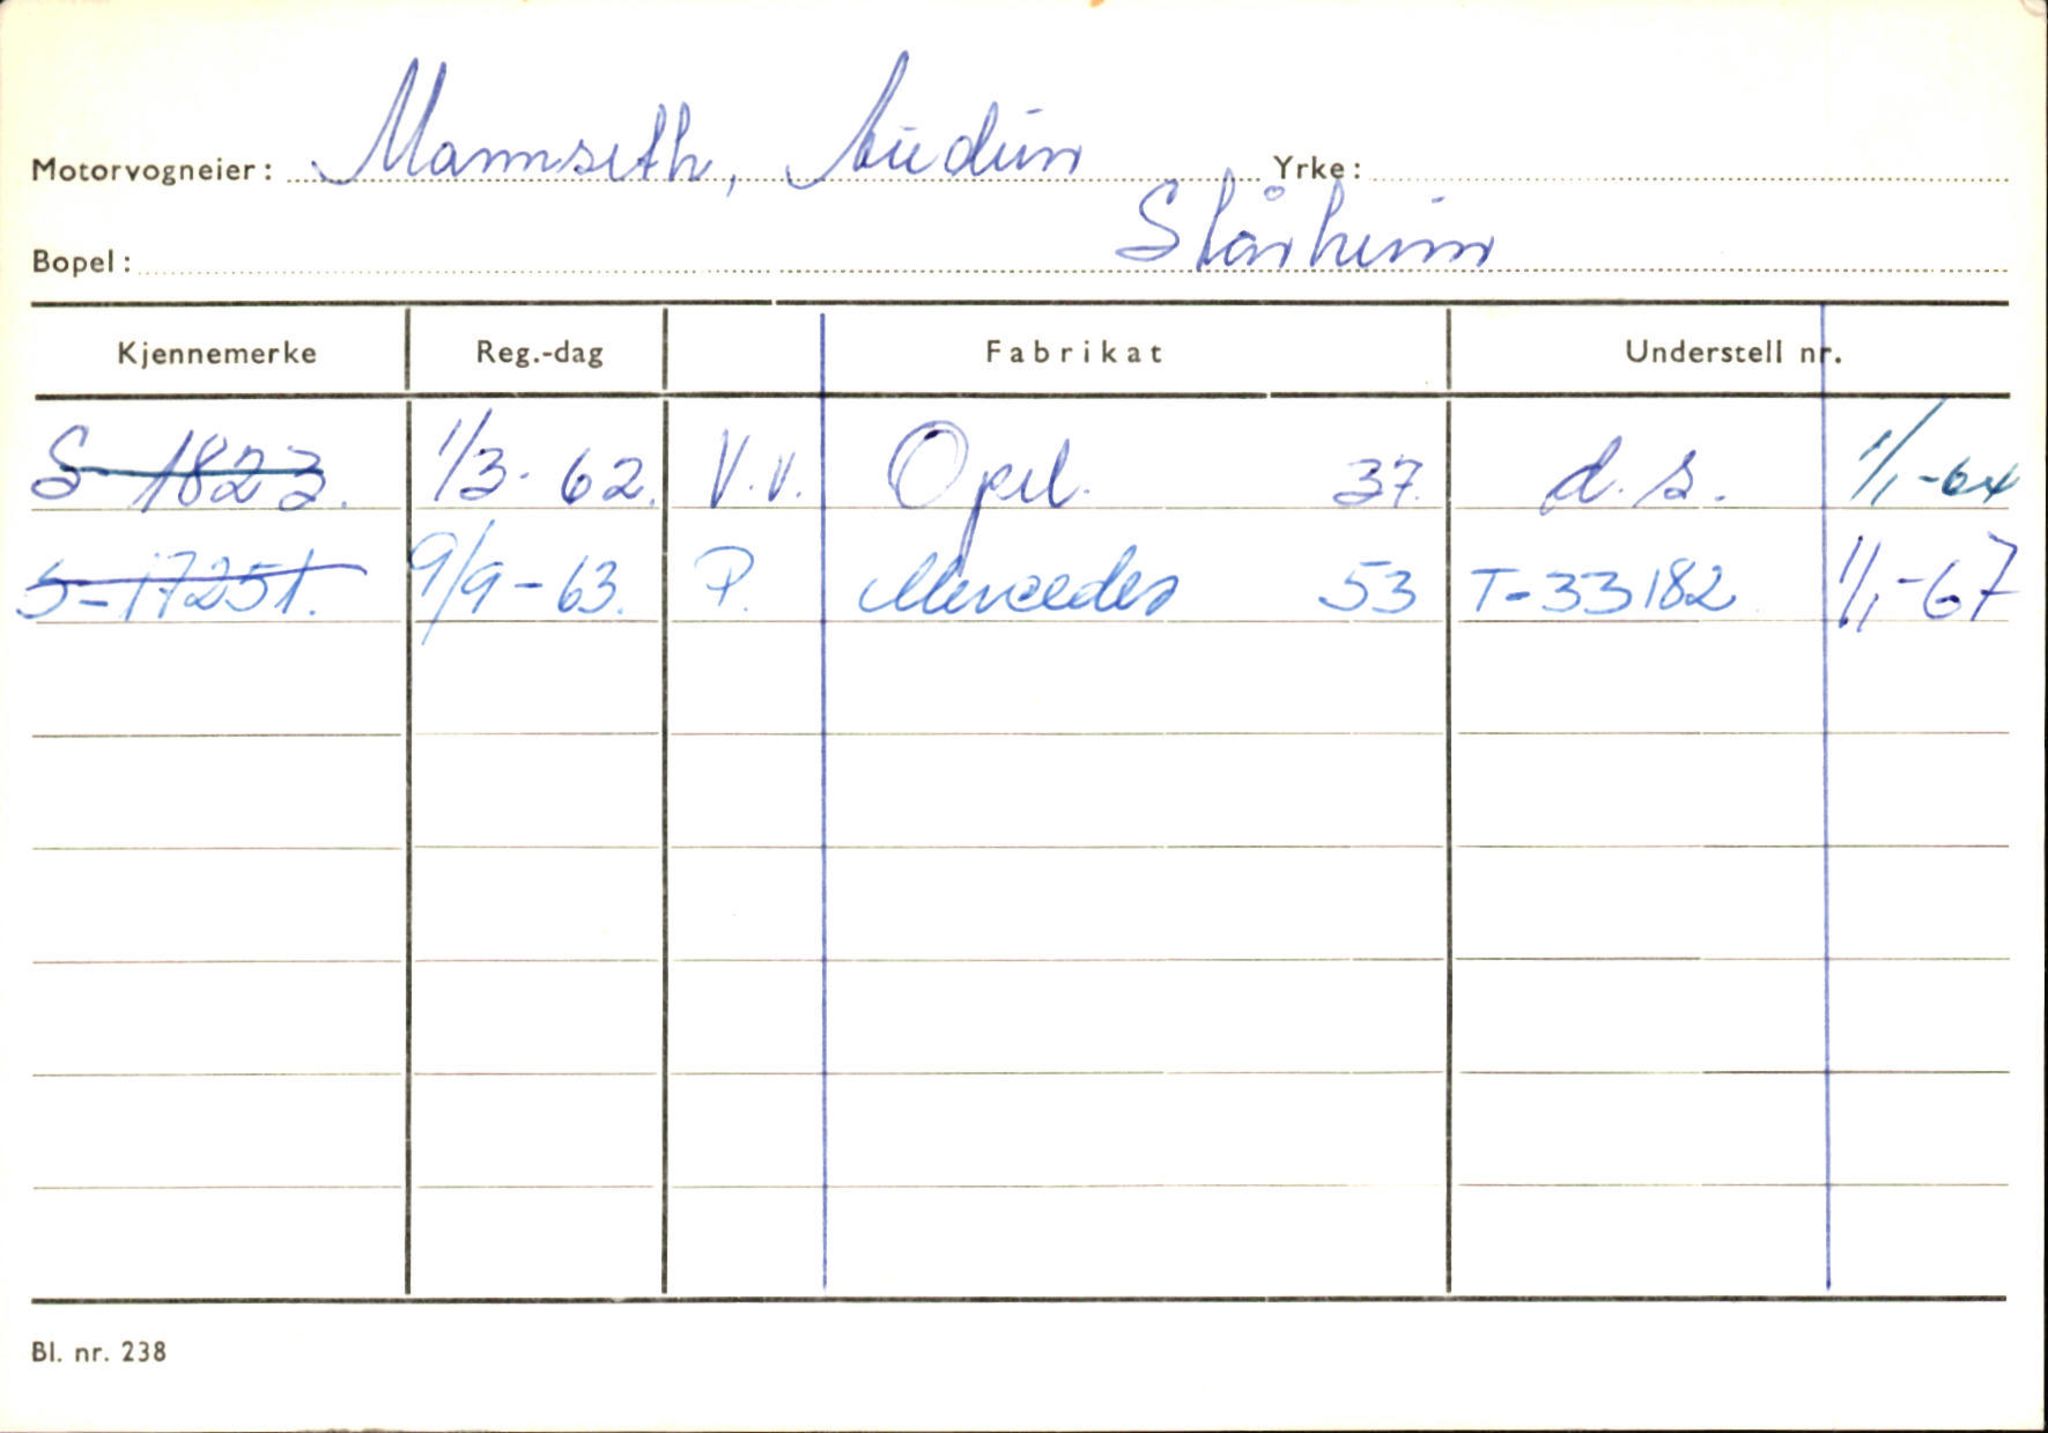 Motorvogneier: Mannseth, Audun Yrke:
Bopel: Stårheim
Kjennemerke Reg.-dag Fabrikat Understell nr.
S-1823. 1/3-62. V.V. Opel. 37. d.s. 1/1-64
S-17251. 9/9-63. P. Mercedes 53 T-33182 1/1-67
Bl. nr. 238